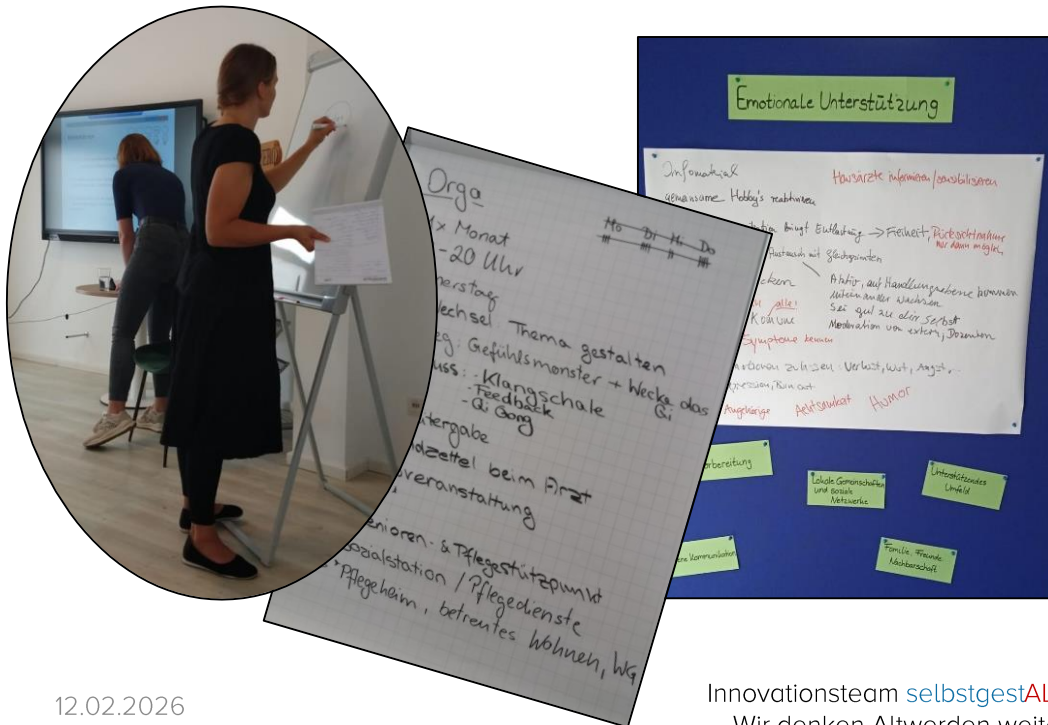 Orga
1x Monat
-20 Uhr
nerstag
Wechsel Thema gestalten
eg: Gefühlsmonster + Wecke das Qi
uss: - Klangschale
- Feedback
- Qi Gong
tergabe
dzettel beim Arzt
veranstaltung
enioren- & Pflegestützpunkt
Sozialstation / Pflegedienste
Pflegeheim, betreutes Wohnen, WG
Mo Di Mi Do
Emotionale Unterstützung
Infomaterial
Hausärzte informieren/sensibilisieren
gemeinsame Hobby's reaktivieren
bringt Entlastung → Freiheit, Rücksichtnahme
nur dann möglich
Austausch mit Gleichgesinnten
Aktiv, auf Handlungsebene kommen
miteinander wachsen
Sei gut zu dir selbst
Moderation von extern, Dozenten
alle!
Symptome kennen
Emotionen zulassen: Verlust, Wut, Angst,
Angehörige Achtsamkeit Humor
orbereitung
Lokale Gemeinschaften
und soziale
Netzwerke
Unterstützendes
Umfeld
ene Kommunikation
Familie, Freunde,
Nachbarschaft
12.02.2026
Innovationsteam selbstgestAL
Wir denken Altwerden weit